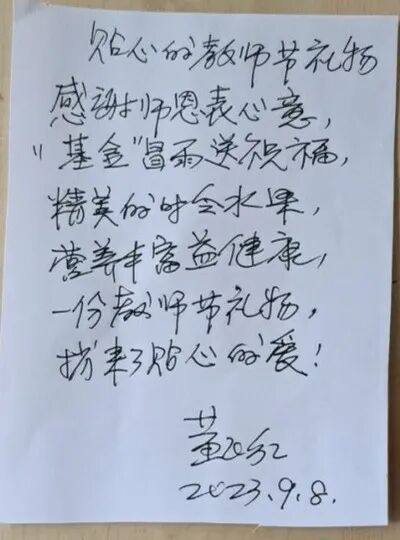 贴心的教师节礼物
感谢师恩表心意,
"基金"冒雨送祝福,
精美的时令水果,
营养丰富益健康,
一份教师节礼物,
捎来了贴心的爱!
董
2023.9.8.